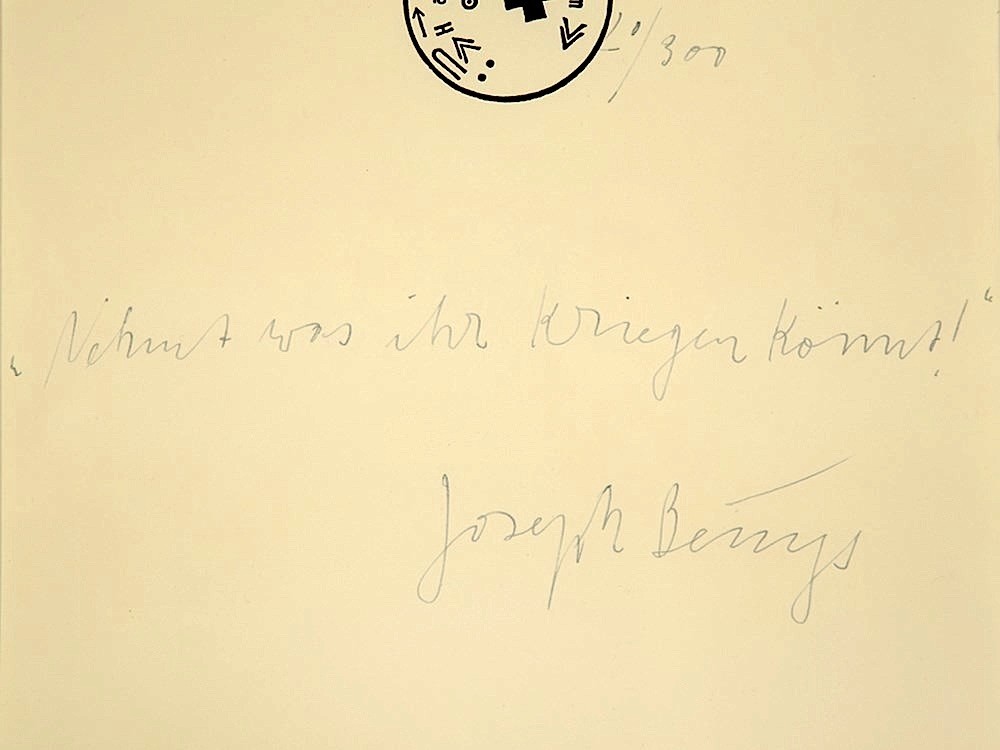 /300
„Nehmt was ihr Kriegen Könnt!“
Joseph Beuys